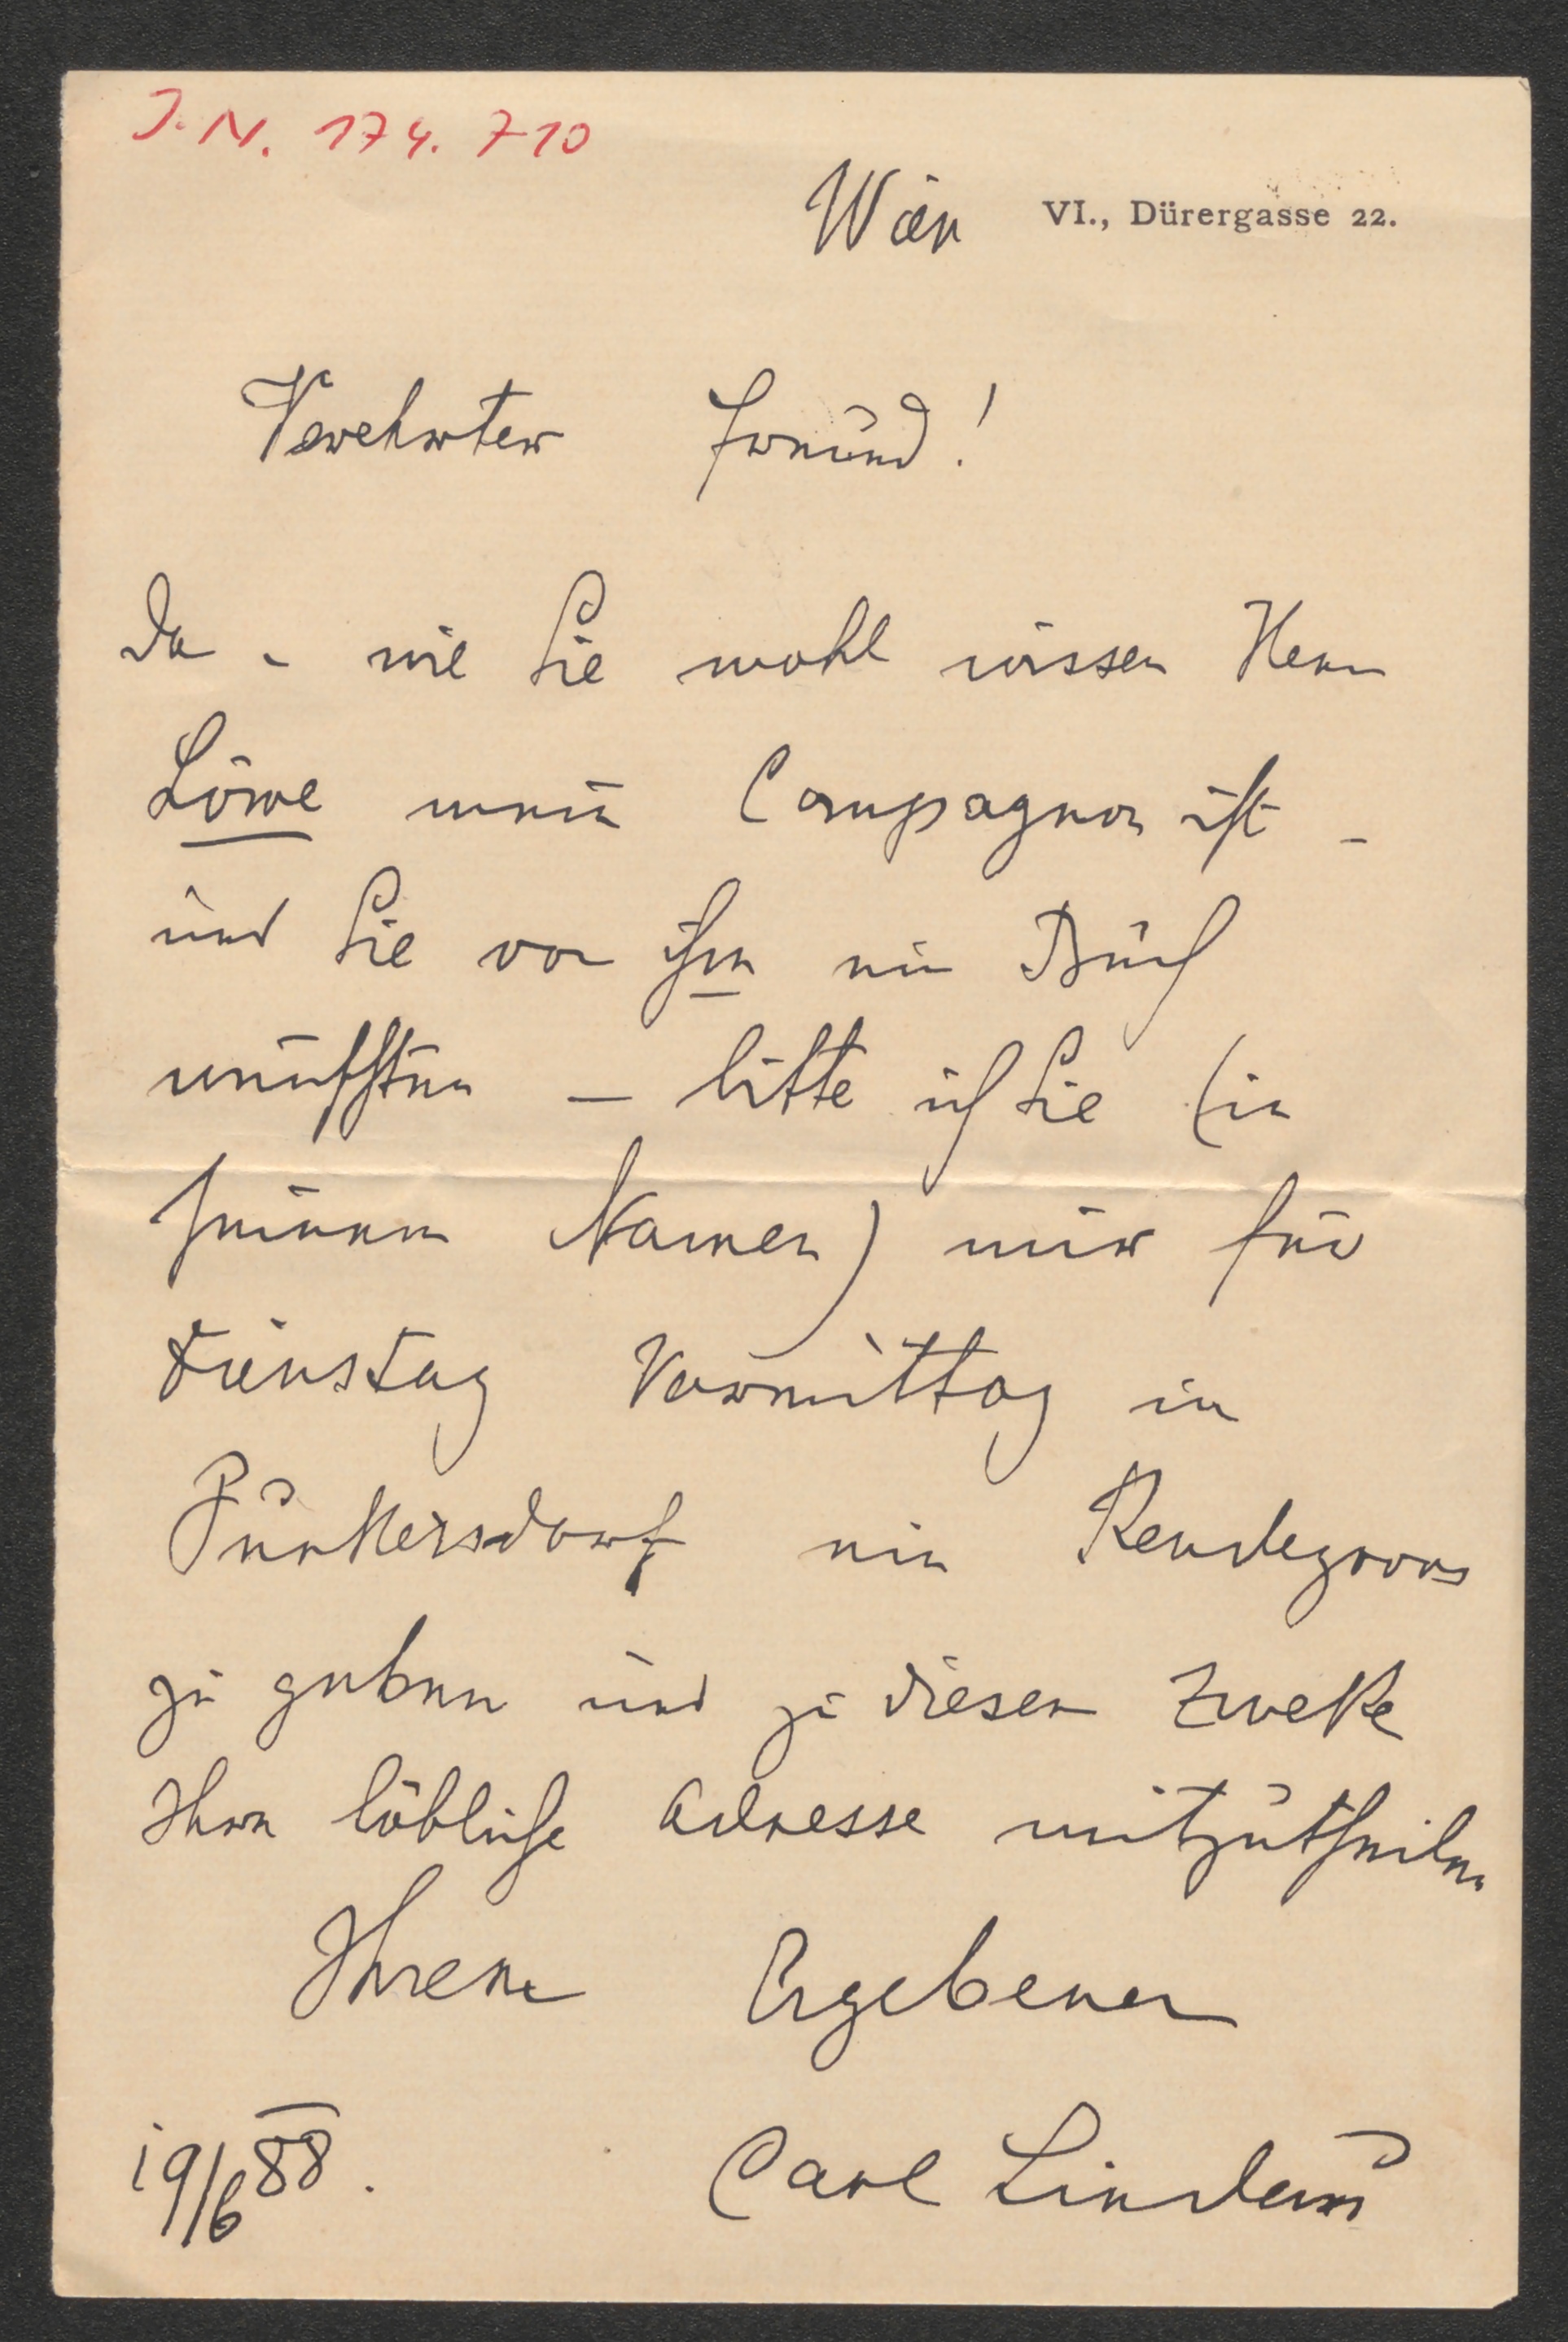 J. N. 174.710
Wien VI., Dürergasse 22.
Verehrter Freund!
Da - wie Sie wohl wissen Herr
Löwe mein Compagnon ist -
und Sie von ihm ein Buch
wünschten — bitte ich Sie (in
seinem Namen) mir für
Dienstag Vormittag in
Purkersdorf ein Rendezvous
zu geben und zu diesem Zwecke
Ihre löbliche Adresse mitzutheilen.
Ihrem Ergebenen
19/6 88. Carl Lindau